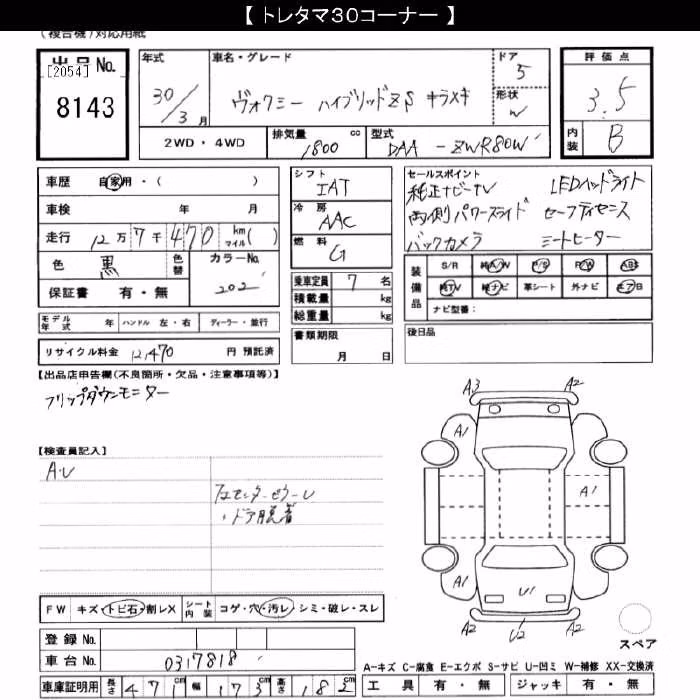 【 トレタマ30コーナー 】
(複合機)対応用紙
出品No.
[2054]
8143
年式
30/3月
車名・グレード
ヴォクシー ハイブリッドZS キラメキ
ドア
5
形状
W
評価点
3.5
内装
B
2WD・4WD
排気量
1800 cc
型式
DAA - ZWR80W
車歴 自家用・( )
車検 年 月
走行 12万7千470 km マイル( )
色 黒 色替
カラーNo. 202
保証書 有・無
シフト
IAT
冷房
AAC
燃料
G
乗車定員 7 名
積載量 kg
総重量 kg
セールスポイント
純正ナビ・TV LEDヘッドライト
両側パワースライド セーフティセンス
バックカメラ シートヒーター
装備品
S/R 純A/W P/S P/W ABS
純TV 純ナビ 革シート 外ナビ エアB
ナビ型番:
モデル年式 年 ハンドル 左・右 ディーラー・並行
書類期限
月 日
後日品
リサイクル料金 12,470 円 預託済
【出品店申告欄(不良箇所・欠品・注意事項等)】
フリップダウンモニター
【検査員記入】
A・U
フロセンターピラーレ
・ドア脱着
A3 A2
A1 A1
A1
A1 A1
U1
A2 U2 A2
スペア
FW キズ・トビ石・割レX シート内装 コゲ・穴・汚レ・シミ・破レ・スレ
登録No.
車台No. 0317818
A-キズ C-腐食 E-エクボ S-サビ U-凹ミ W-補修 XX-交換済
車庫証明用 長さ 471cm 幅 173cm 高さ 182cm
工具 有・無 ジャッキ 有・無